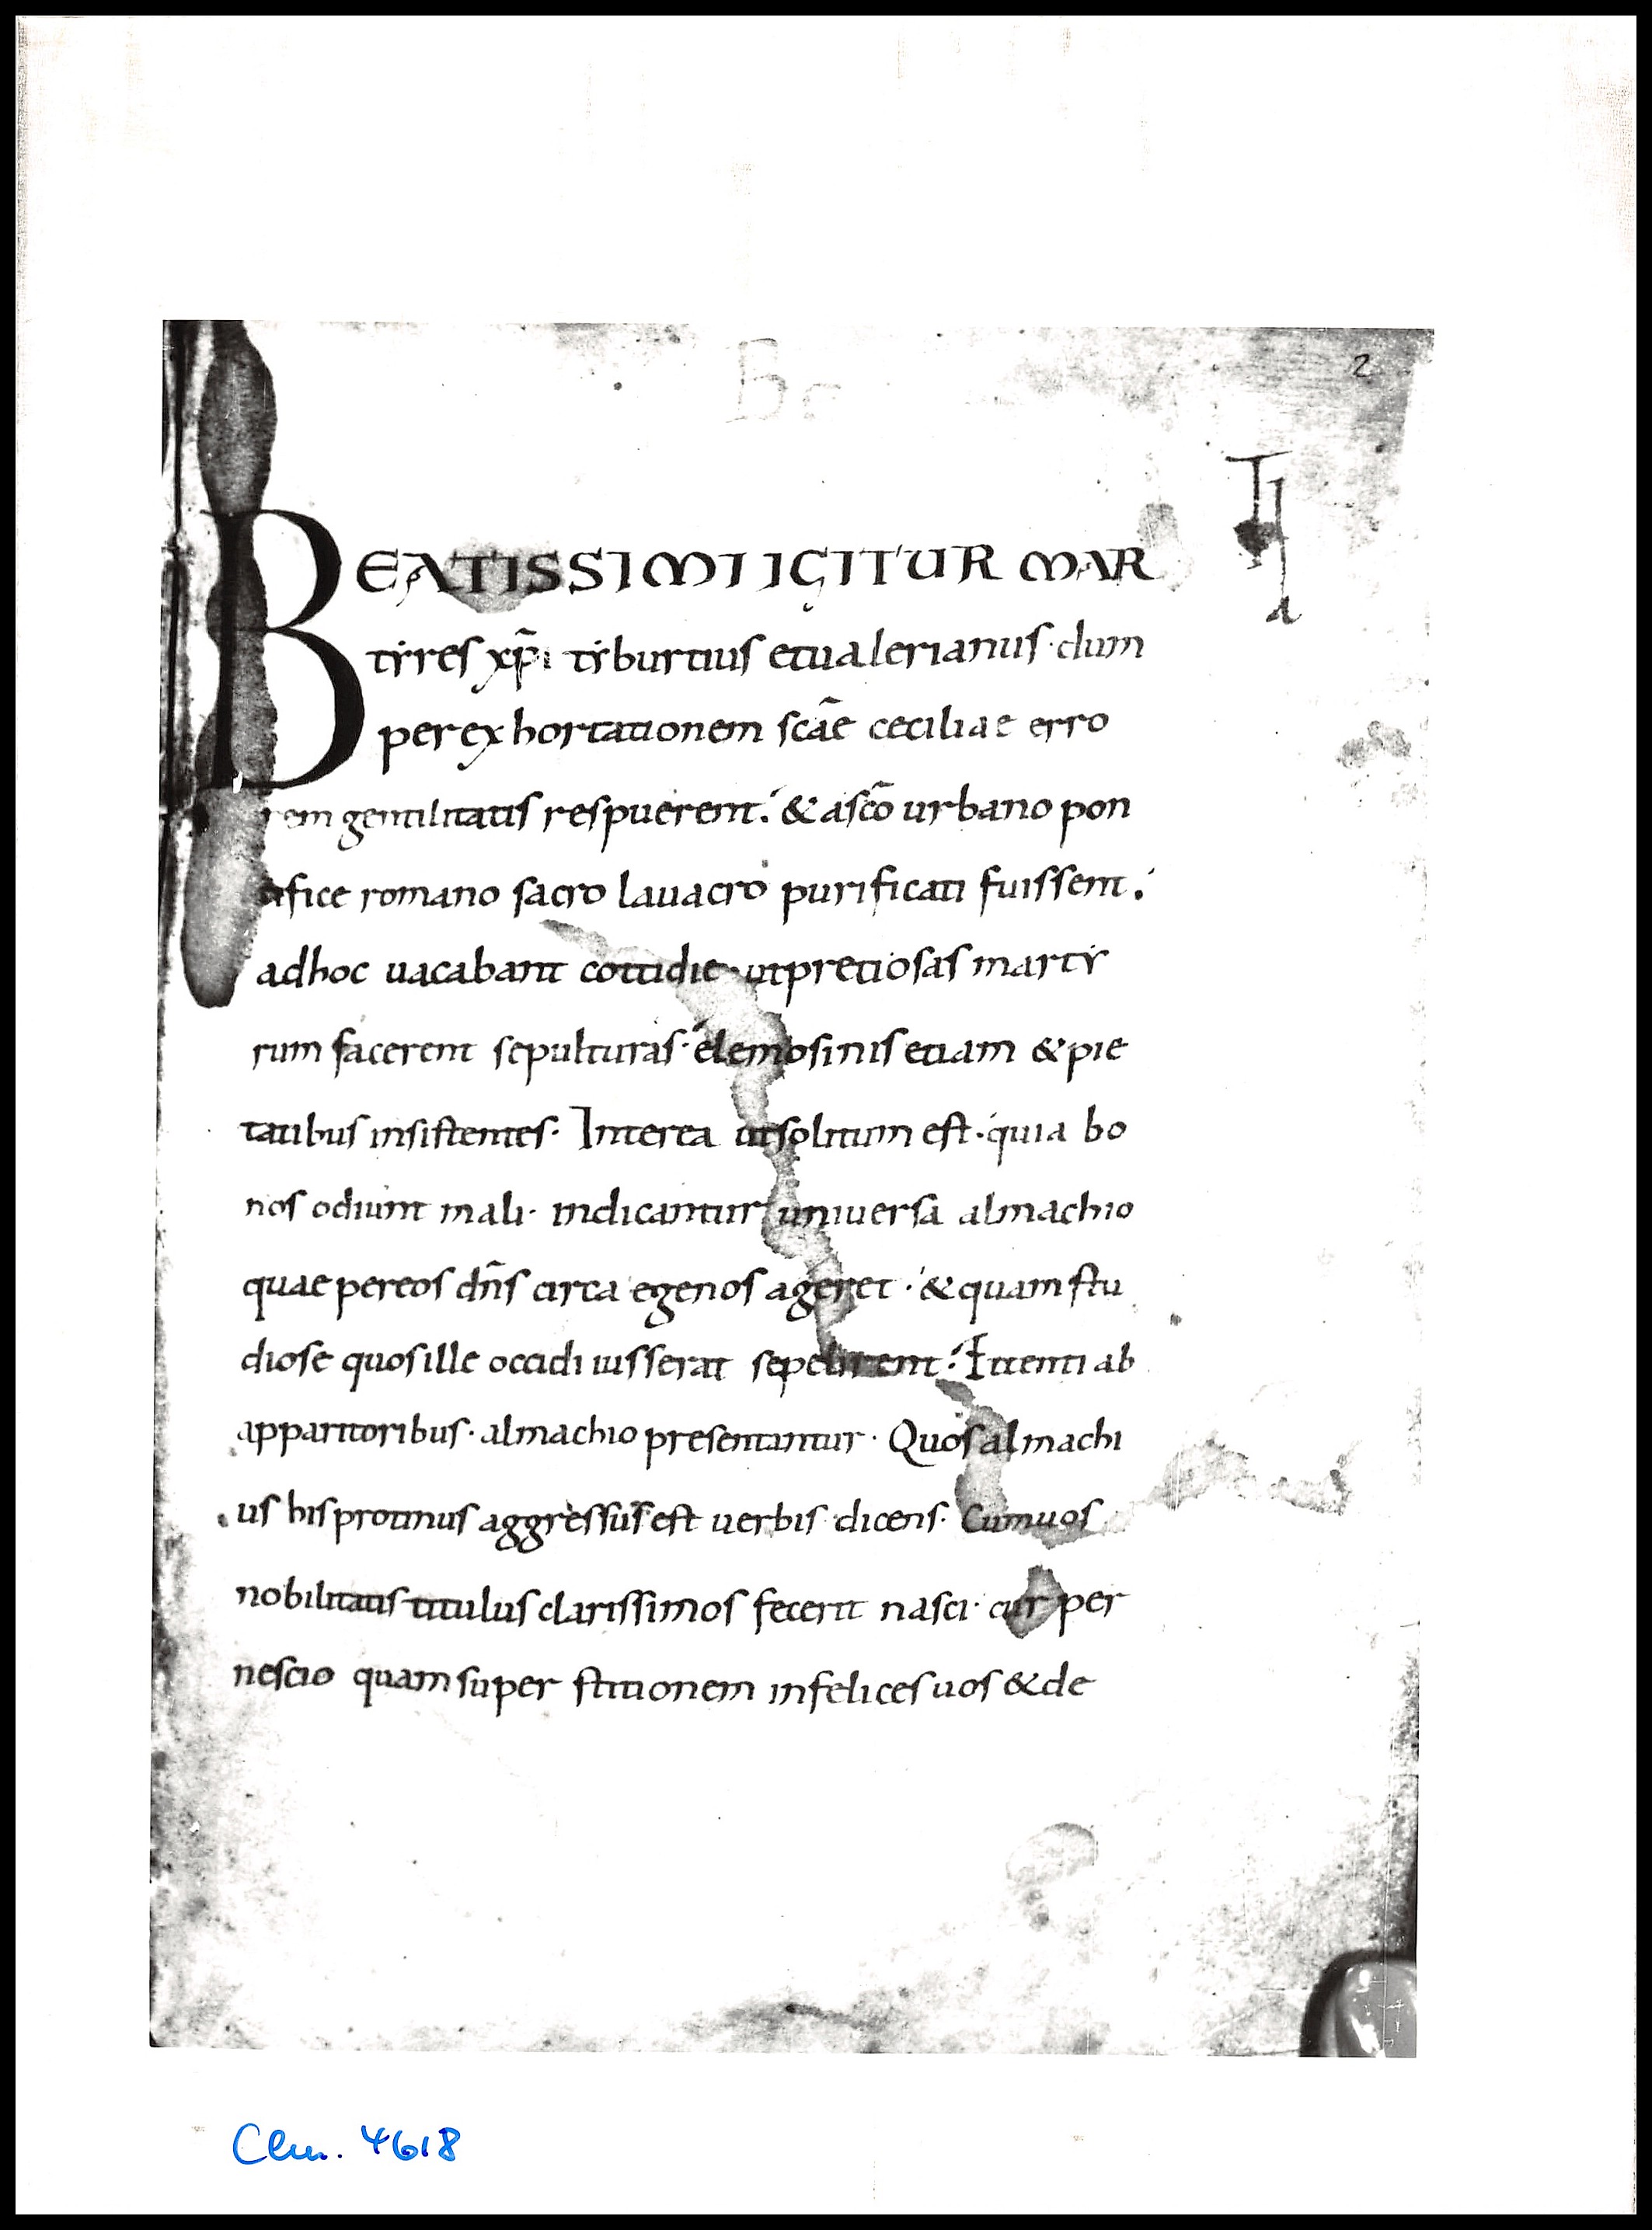 2
BEATISSIMI IGITUR MAR
tẏres xp̄i tẏburtius et ualerianus · dum
per exhortationem sc̄ae ceciliae erro
rem gentilitatis respuerent · & a sc̄o urbano pon
tifice romano sacro lauacro purificati fuissent ·
ad hoc uacabant cottidie · ut pretiosas martẏ
rum facerent sepulturas · elemosinis etiam & pie
tatibus insistentes · Interea ut solitum est · quia bo
nos odiunt mali · indicantur uniuersa almachio
quae per eos dn̄s circa egenos ageret · & quam stu
diose quos ille occidi iusserat sepelirent · Ittenti ab
apparitoribus · almachio presentantur · Quos almachi
us his protinus aggressus est uerbis dicens · Cum uos
nobilitatis titulus clarissimos fecerit nasci · cur per
nescio quam superstitionem infelices uos & de
Clm. 4618